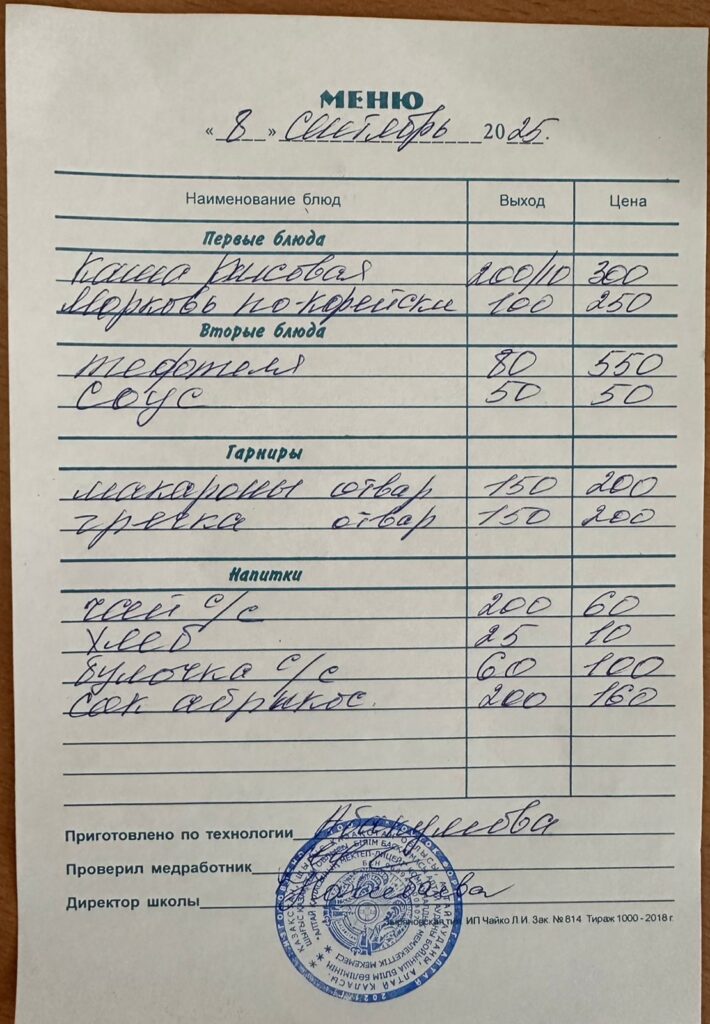 МЕНЮ
« 8 » Сентябрь 2025.
Наименование блюд Выход Цена
Первые блюда
Каша рисовая 200/10 300
Морковь по-корейски 100 250
Вторые блюда
тефтеля 80 550
Соус 50 50
Гарниры
макароны отвар 150 200
гречка отвар 150 200
Напитки
чай с/с 200 60
хлеб 25 10
булочка с/с 60 100
сок абрикос. 200 160
Приготовлено по технологии Абакумова
Проверил медработник
Директор школы
тип. ИП Чайко Л.И. Зак. № 814 Тираж 1000 - 2018 г.